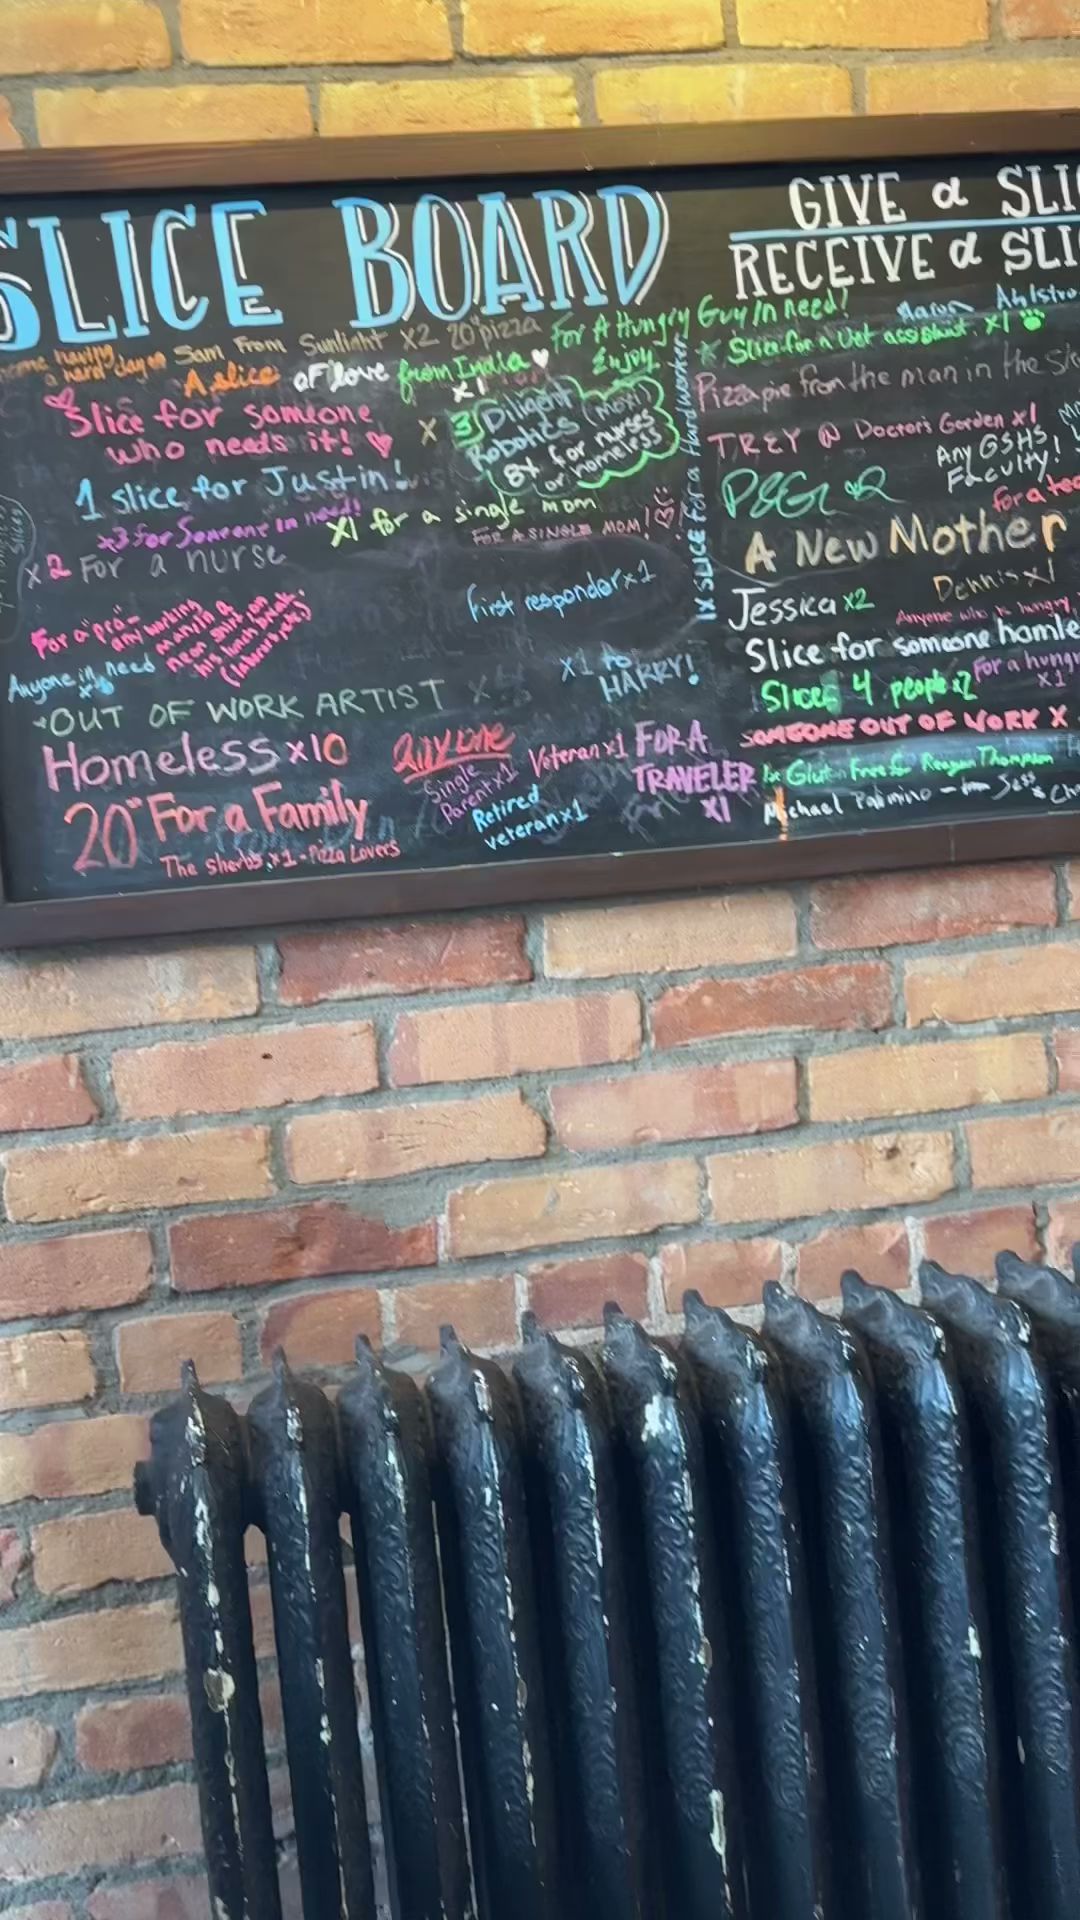 SLICE BOARD
GIVE a
RECEIVE a
Sam From Sunlight x2 20" pizza
For A Hungry Guy In need!
Enjoy
A slice of love from India
x1
Slice for someone
who needs it!
x 3 Diligent
Robotics (MOXI)
8x for nurses
or homeless
1 slice for Justin!
x3 for Someone in need!
x1 for a single mom
FOR A SINGLE MOM!
x2 For a nurse
First responder x1
Anyone in need
x1 to
HARRY!
OUT OF WORK ARTIST
Homeless x10
anyone
Single
Parent x1
Veteran x1
Retired
veteran x1
FOR A
TRAVELER
x1
20" For a Family
The Sherbs x1 - Pizza Lovers
1x SLICE for a Hardworker
Aaron
Slice for a Vet assistant. x1
Pizza pie from the man in the
TREY @ Doctors Garden x1
Any GSHS
Faculty!
A New Mother
Dennis x1
Jessica x2
Anyone who is hungry
Slice for someone
Slices 4 people x2
For a
x1
SOMEONE OUT OF WORK X
1x Gluten Free for Reagan Thompson
Michael Palmino